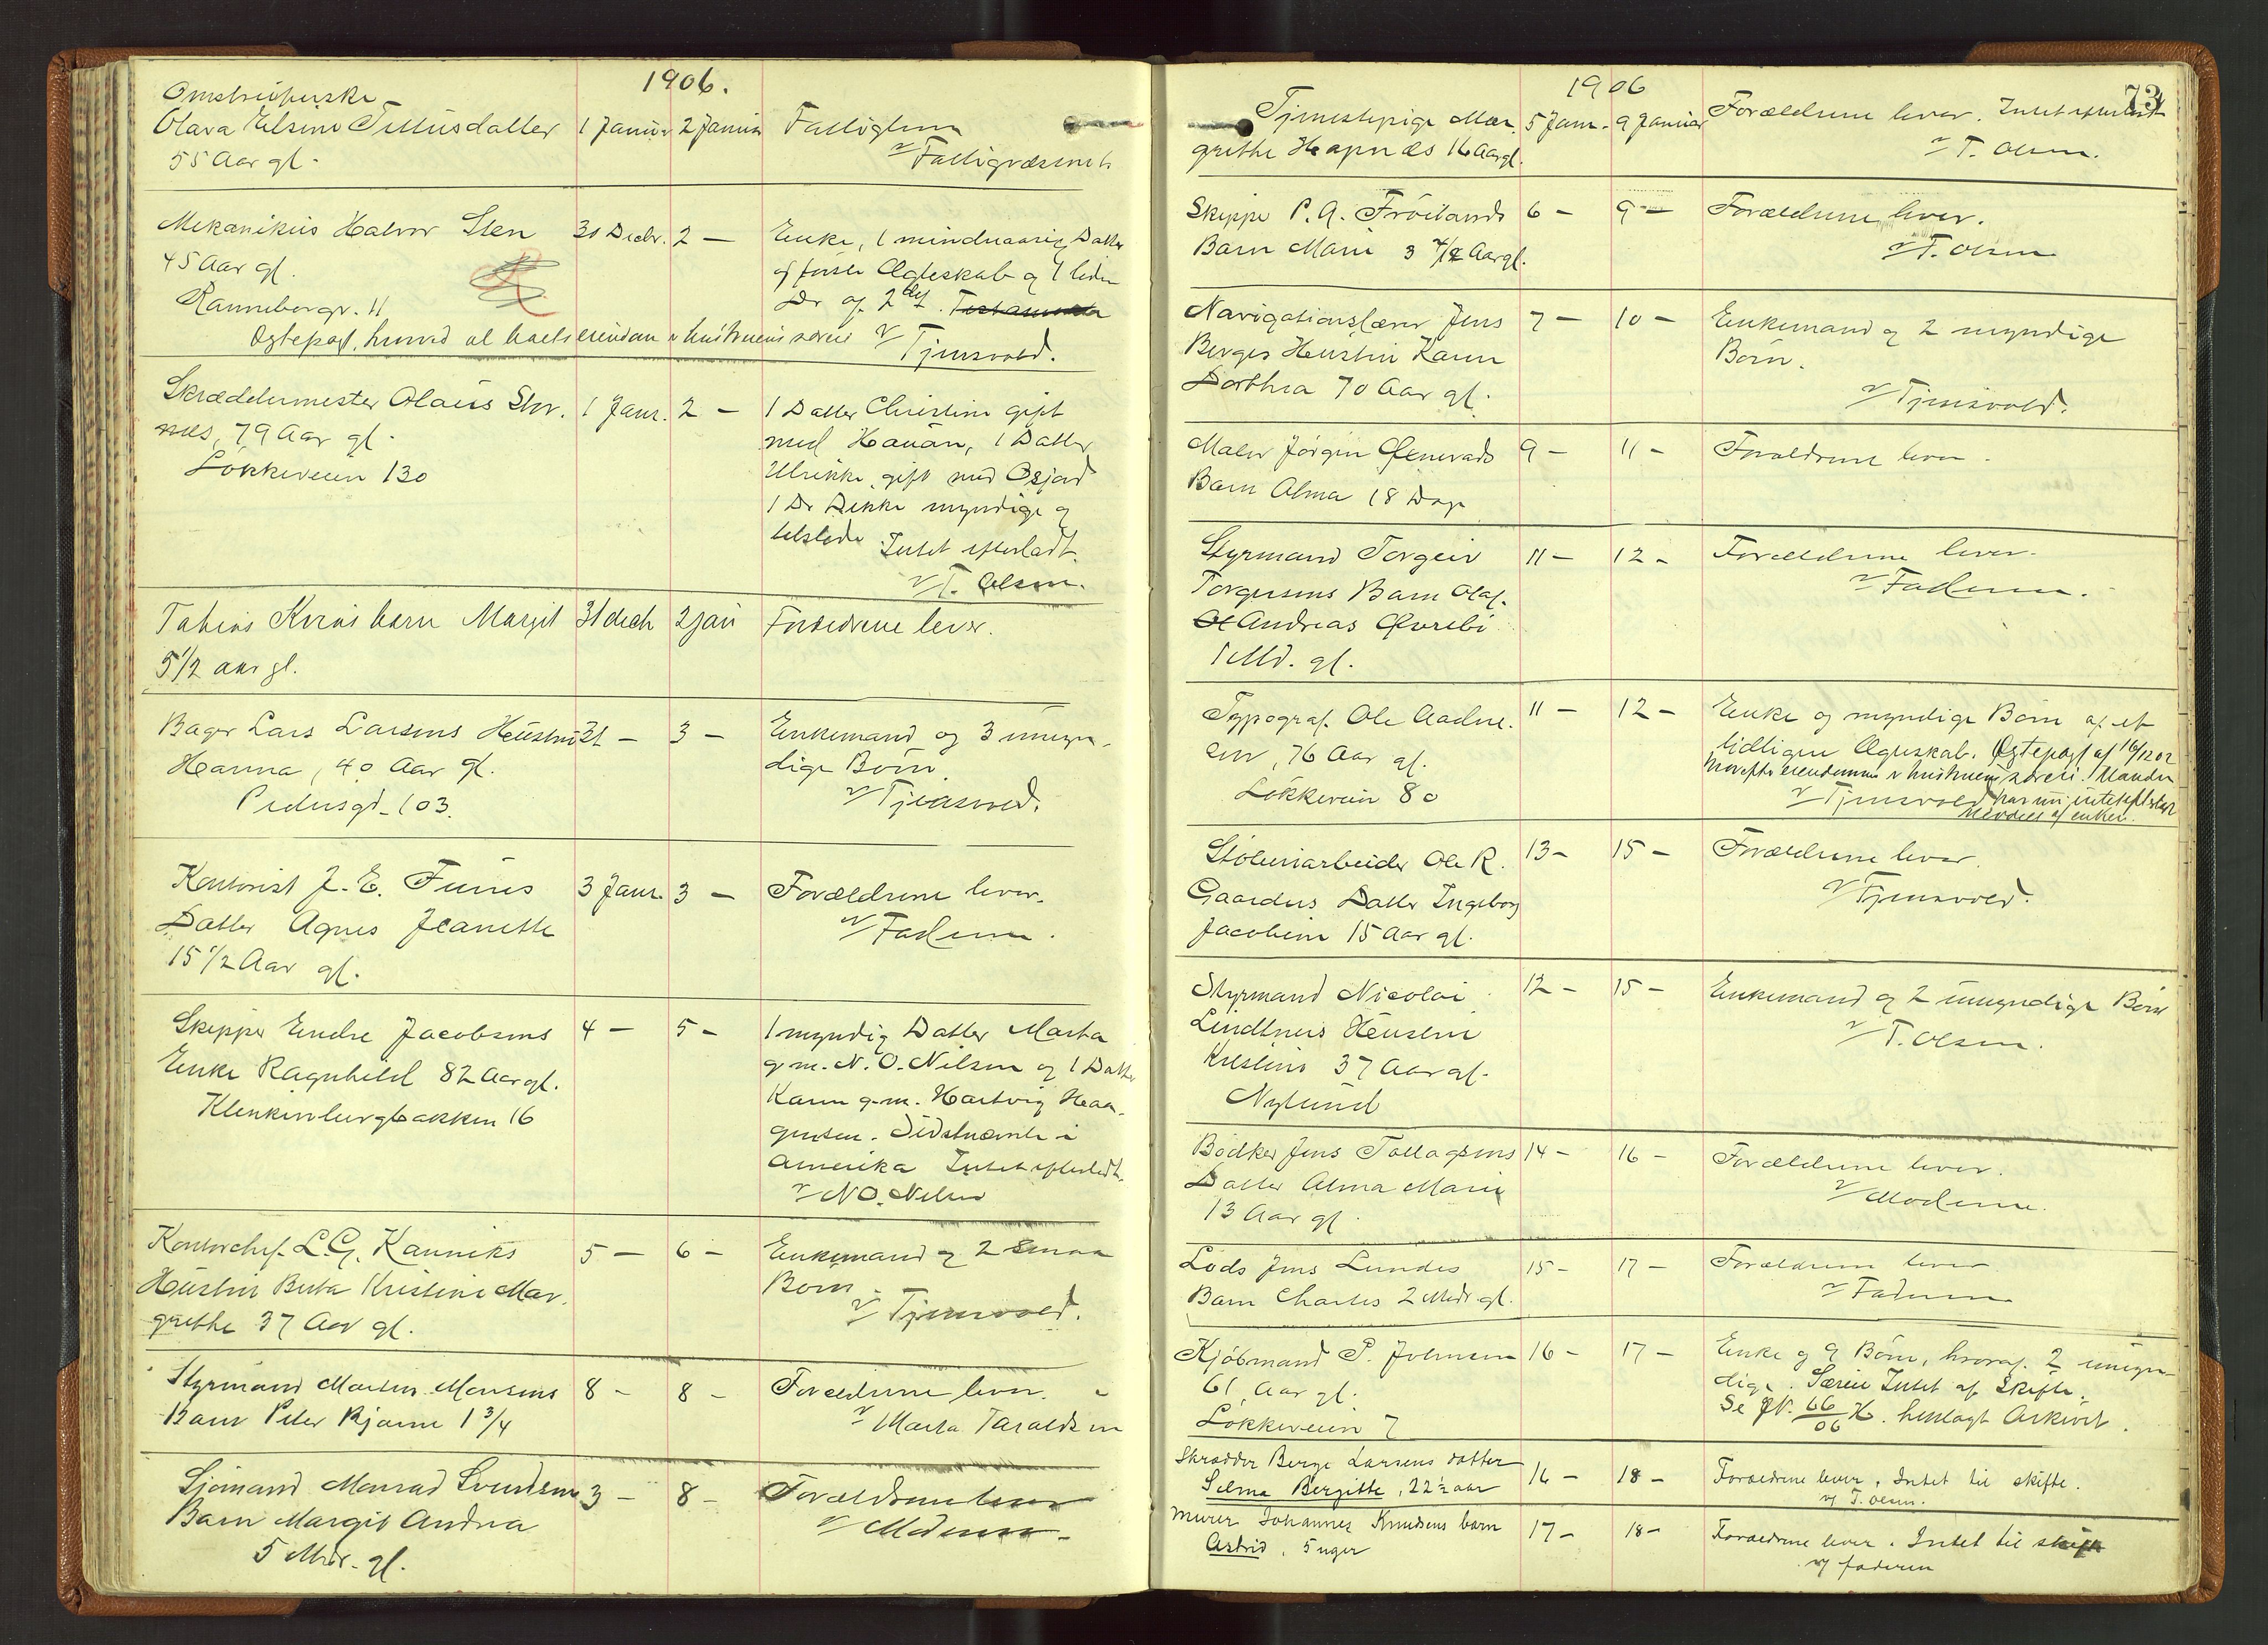 1906.
Olava Elsine Tollisdatter 1 Januar 2 Januar Fattiglem
55 Aar gl. v/ Fattigvæsenet
Mekanikus Halvor Sten 30 Decbr. 2 — Enke, 1 mindreaarig Datter
45 Aar gl. af første Ægteskab og 1 liden
Dr af 2det
Ranneborggr. 11
Egtepagt, hvorved al boets eiendom er hustruens særeie v/ Tjensvold.
Skræddermester Olaus Stor- 1 Janr. 2 — 1 Datter Christine gift
næs, 79 Aar gl. med Hauan, 1 Datter
Løkkeveien 130 Ulrikke, gift med
1 Dr myndige og
tilstede Intet efterladt.
v/ T. Olsen.
Tobias barn Margit 31 decb 2 jan Forældrene lever.
5 1/2 aar gl.
Bager Lars Larsens Hustru 31 — 3 — Enkemand og 3 umyn-
Hanna, 40 Aar gl. dige Børn.
Pedersgd. 103. v/ Tjensvold.
Kontorist J. E. 3 Janr. 3 — Forældrene lever.
Datter Agnes Jeanette v/ Faderen.
15 1/2 Aar gl.
Skipper Endre Jacobsens 4 — 5 — 1 myndig Datter Marta
Enke Ragnhild 82 Aar gl. g. m. N. O. Nilsen og 1 Datter
Klinkenbergbakken 16 Karen g. m. Hartvig Haa-
gensen. Sidstnævnte i
Amerika Intet efterladt.
v/ N. O. Nilsen
Kontorchef L. G. Kanniks 5 — 6 — Enkemand og 2 smaa
Hustru Berta Kristine Mar- Børn.
grethe 37 Aar gl. v/ Tjensvold.
Styrmand Martin Monsens 8 — 8 — Forældrene lever.
Barn Peter Bjarne 1 3/4 v/ Marta Taraldsen
Sjømand Monrad Svendsens 3 — 8 — Forældrene lever
Barn Margit Andrea v/ Moderen.
5 Mdr. gl.
1906 73
Tjenestepige Mar- 5 Janr. 9 Januar Forældrene lever. Intet efterladt
grethe Hapnæs 16 Aar gl. v/ T. Olsen.
Skipper P. A. Frøilands 6 — 9 — Forældrene lever.
Barn Marie 3 4/12 Aar gl. v/ T. Olsen
Navigationslærer Jens 7 — 10 — Enkemand og 2 myndige
Berges Hustru Karen Børn.
Dorthea 70 Aar gl. v/ Tjensvold.
Maler Jørgen 9 — 11 — Forældrene lever.
Barn Alma 18 Dage
Styrmand Torgeir 11 — 12 — Forældrene lever.
Torgersens Barn Olaf v/ Faderen.
Andreas Øvrebø
1 Md. gl.
Typograf Ole Aadne- 11 — 12 — Enke og myndige Børn af et
sen, 76 Aar gl. tidligere Ægteskab. Egtepagt af 16/12 02
Løkkeveien 80 hvorefter eiendommen er hustruens særeie. Manden
v/ Tjensvold har intet efterladt
af enken.
Støberiarbeider Ole R. 13 — 15 — Forældrene lever.
Gaarders Datter Ingeborg v/ Tjensvold.
Jacobine 15 Aar gl.
Styrmand Nicolai 12 — 15 — Enkemand og 2 umyndige Børn
Lindtners Hustru v/ T. Olsen.
Kristine 37 Aar gl.
Nylund
Bødker Jens Tollagsens 14 — 16 — Forældrene lever.
Datter Alma Marie v/ Moderen.
13 Aar gl.
Lods Jens Lundes 15 — 17 — Forældrene lever
Barn Charles 2 Mdr. gl. v/ Faderen
Kjøbmand P. Johnsen 16 — 17 — Enke og 9 Børn, hvoraf 2 umyn-
61 Aar gl. dige. Særeie Intet af Skifte.
Løkkeveien 7 Se JN. 66/06 H. henlagt Arkivet.
Skrædder Berge Larsens datter 16 — 18 — Forældrene lever. Intet til skifte.
Selma Bergitte, 22 1/2 aar v/ T. Olsen.
Murer Johannes Knudsens barn 17 — 18 — Forældrene lever. Intet til skifte
Astrid, 5 uger v/ faderen